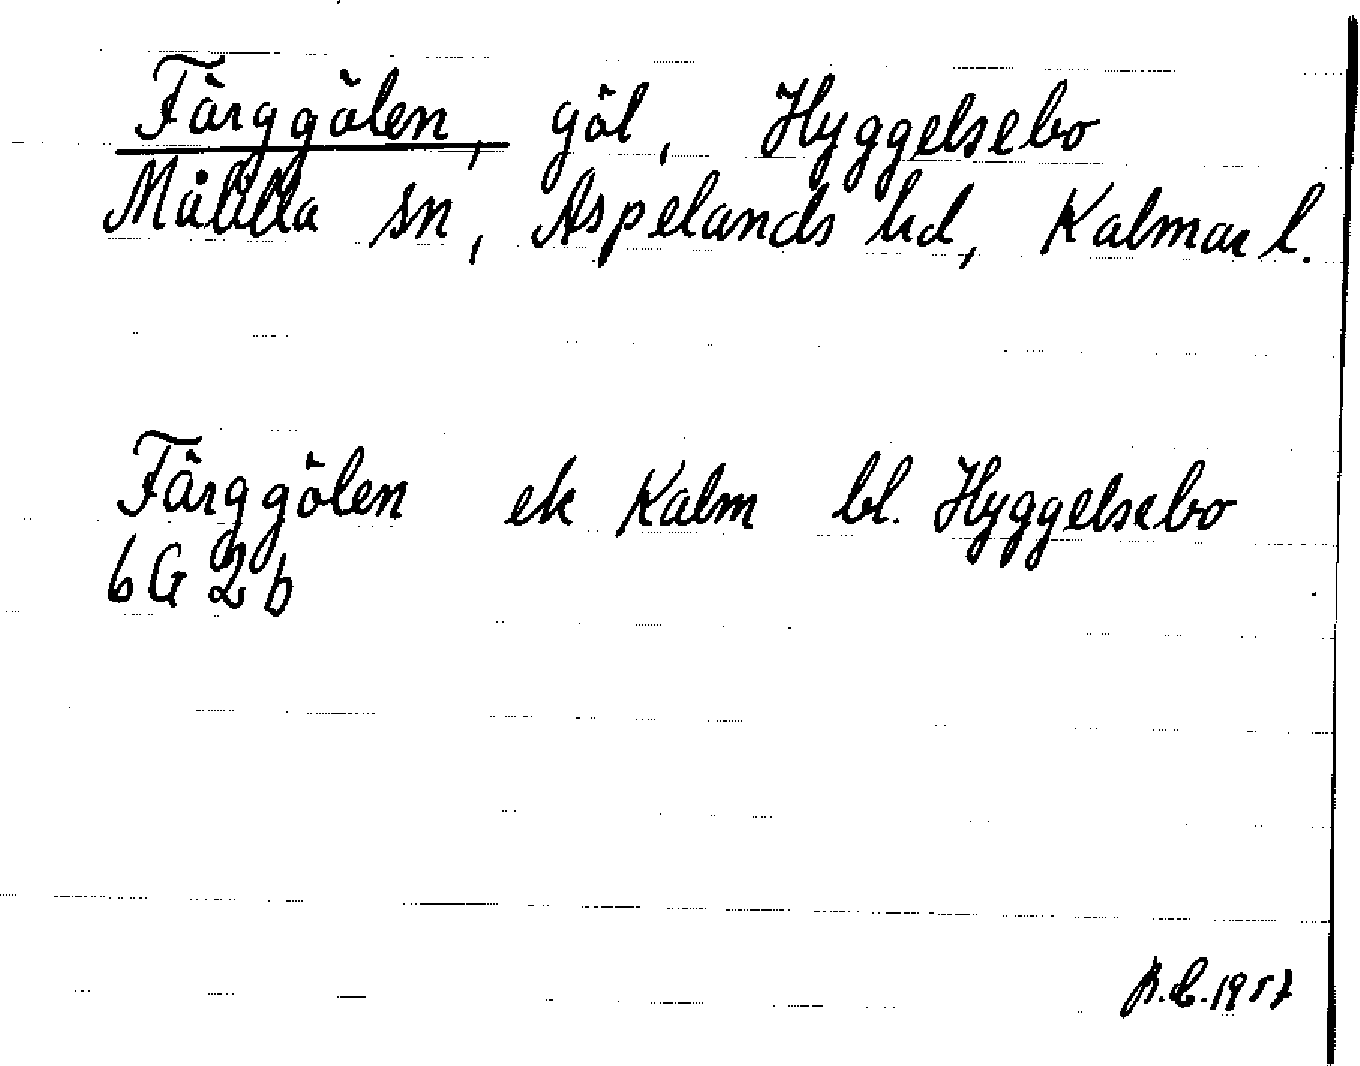 Färggölen, göl, Hyggelsebo
Målilla sn, Aspelands hd, Kalmar l.
Färggölen ek Kalm bl. Hyggelsebo
6G 2b
1957